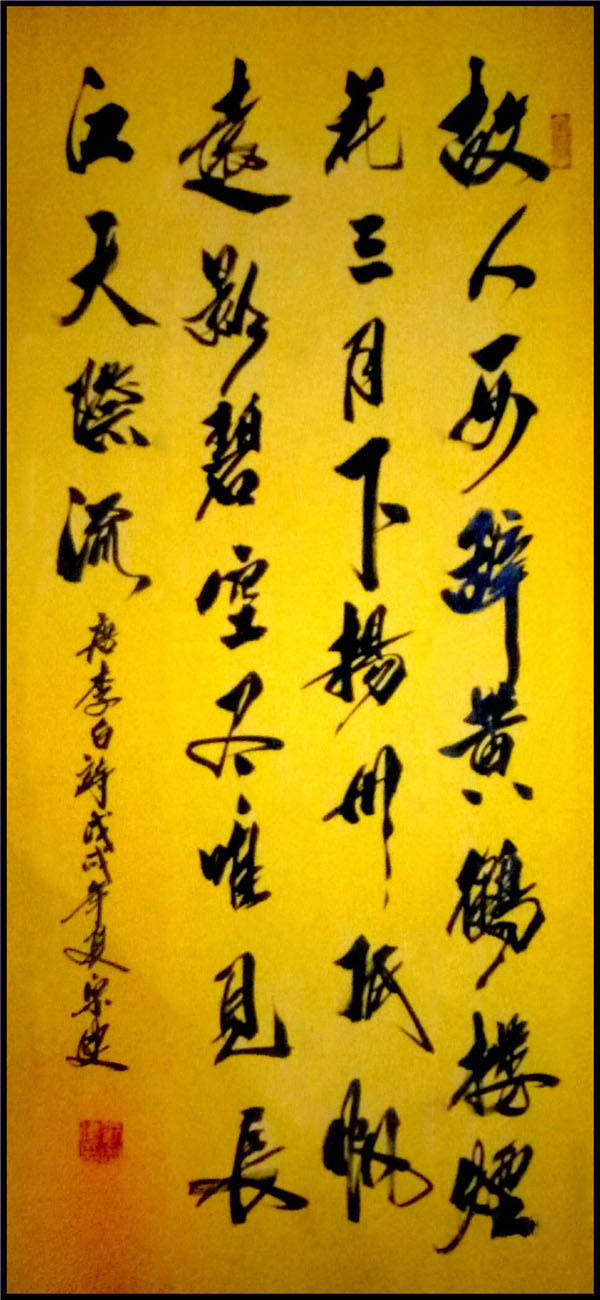 故人西辭黃鶴樓煙
花三月下揚州孤帆
遠影碧空尽唯見長
江天際流
唐李白詩戊戌年夏